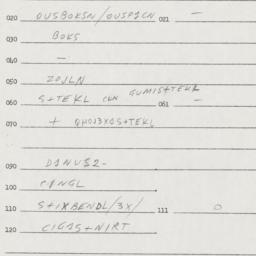 020 OUSBOKSN/OUSPICN 021 —
030 BOKS
040 —
050 ZOJLN
060 S+TEKL CKN GUMIS+TEKL 061 —
070 + QHOJ3XGS+TEKL
090 DANUS2-
100
110 S+IXBENDL/3X/ 111 0
120 CIGIS+NIRT